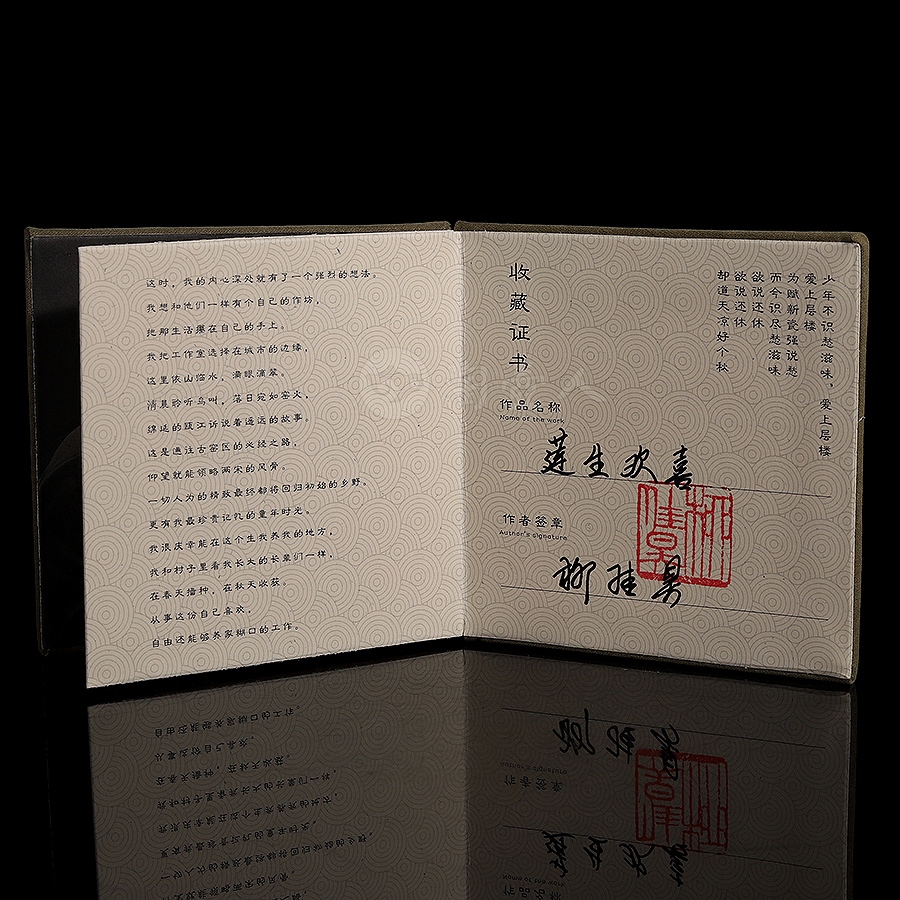 这时，我的内心深处就有了一个强烈的想法。
我想和他们一样有个自己的作坊，
把那生活攥在自己的手上。
我把工作室选择在城市的边缘，
这里依山临水，满眼滴翠。
清晨聆听鸟叫，落日宛如窑火，
绵延的瓯江诉说着遥远的故事。
这是通往古窑区的必经之路，
仰望就能领略两宋的风骨。
一切人为的精致最终都将回归初始的乡野。
更有我最珍贵记忆的童年时光。
我很庆幸能在这个生我养我的地方，
我和村子里看我长大的长辈们一样，
在春天播种，在秋天收获。
从事这份自己喜欢，
自由还能够养家糊口的工作。
少年不识愁滋味，爱上层楼
爱上层楼
为赋新瓷强说愁
而今识尽愁滋味
欲说还休
欲说还休
却道天凉好个秋
收藏证书
作品名称
Name of the work
莲生欢喜
作者签章
Author's signature